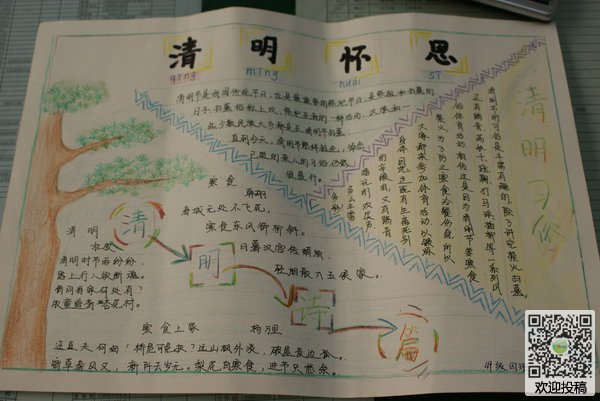 清 明 怀 思
qīng míng huái sī
清明节是我国传统节日,也是最重要的祭祀节日,是祭祖和扫墓的
日子。扫墓俗称上坟,祭祀死者的一种活动。汉族和一
些少数民族大多都是在清明节扫墓。
直到今天,清明节祭拜祖先,悼念
已逝的亲人的习俗仍很
盛行。
清明习俗
清明节的习俗是丰富有趣的,除了讲究禁火、扫墓,
还有踏青、荡秋千、蹴鞠、打马球、插柳等一系列风
俗体育活动。相传这是因为清明节要寒食
禁火,为了防止寒食冷餐伤身,所以
大家都来参加体育活动,以锻炼
身体。因此,这一既有生离死别
的
又有踏青
游玩的欢笑声
寒食
春城无处不飞花,
寒食东风御柳斜。
日暮汉宫传蜡烛,
轻烟散入五侯家。
清明
杜牧
清明时节雨纷纷,
路上行人欲断魂。
借问酒家何处有?
牧童遥指杏花村。
清
明
诗
篇
寒食上冢 杨万里
迳直夫何细!桥危可免扶?远山枫外淡,破屋麦边孤。
宿草春风又,新阡去岁无。梨花自寒食,进节只愁余。
欢迎投稿